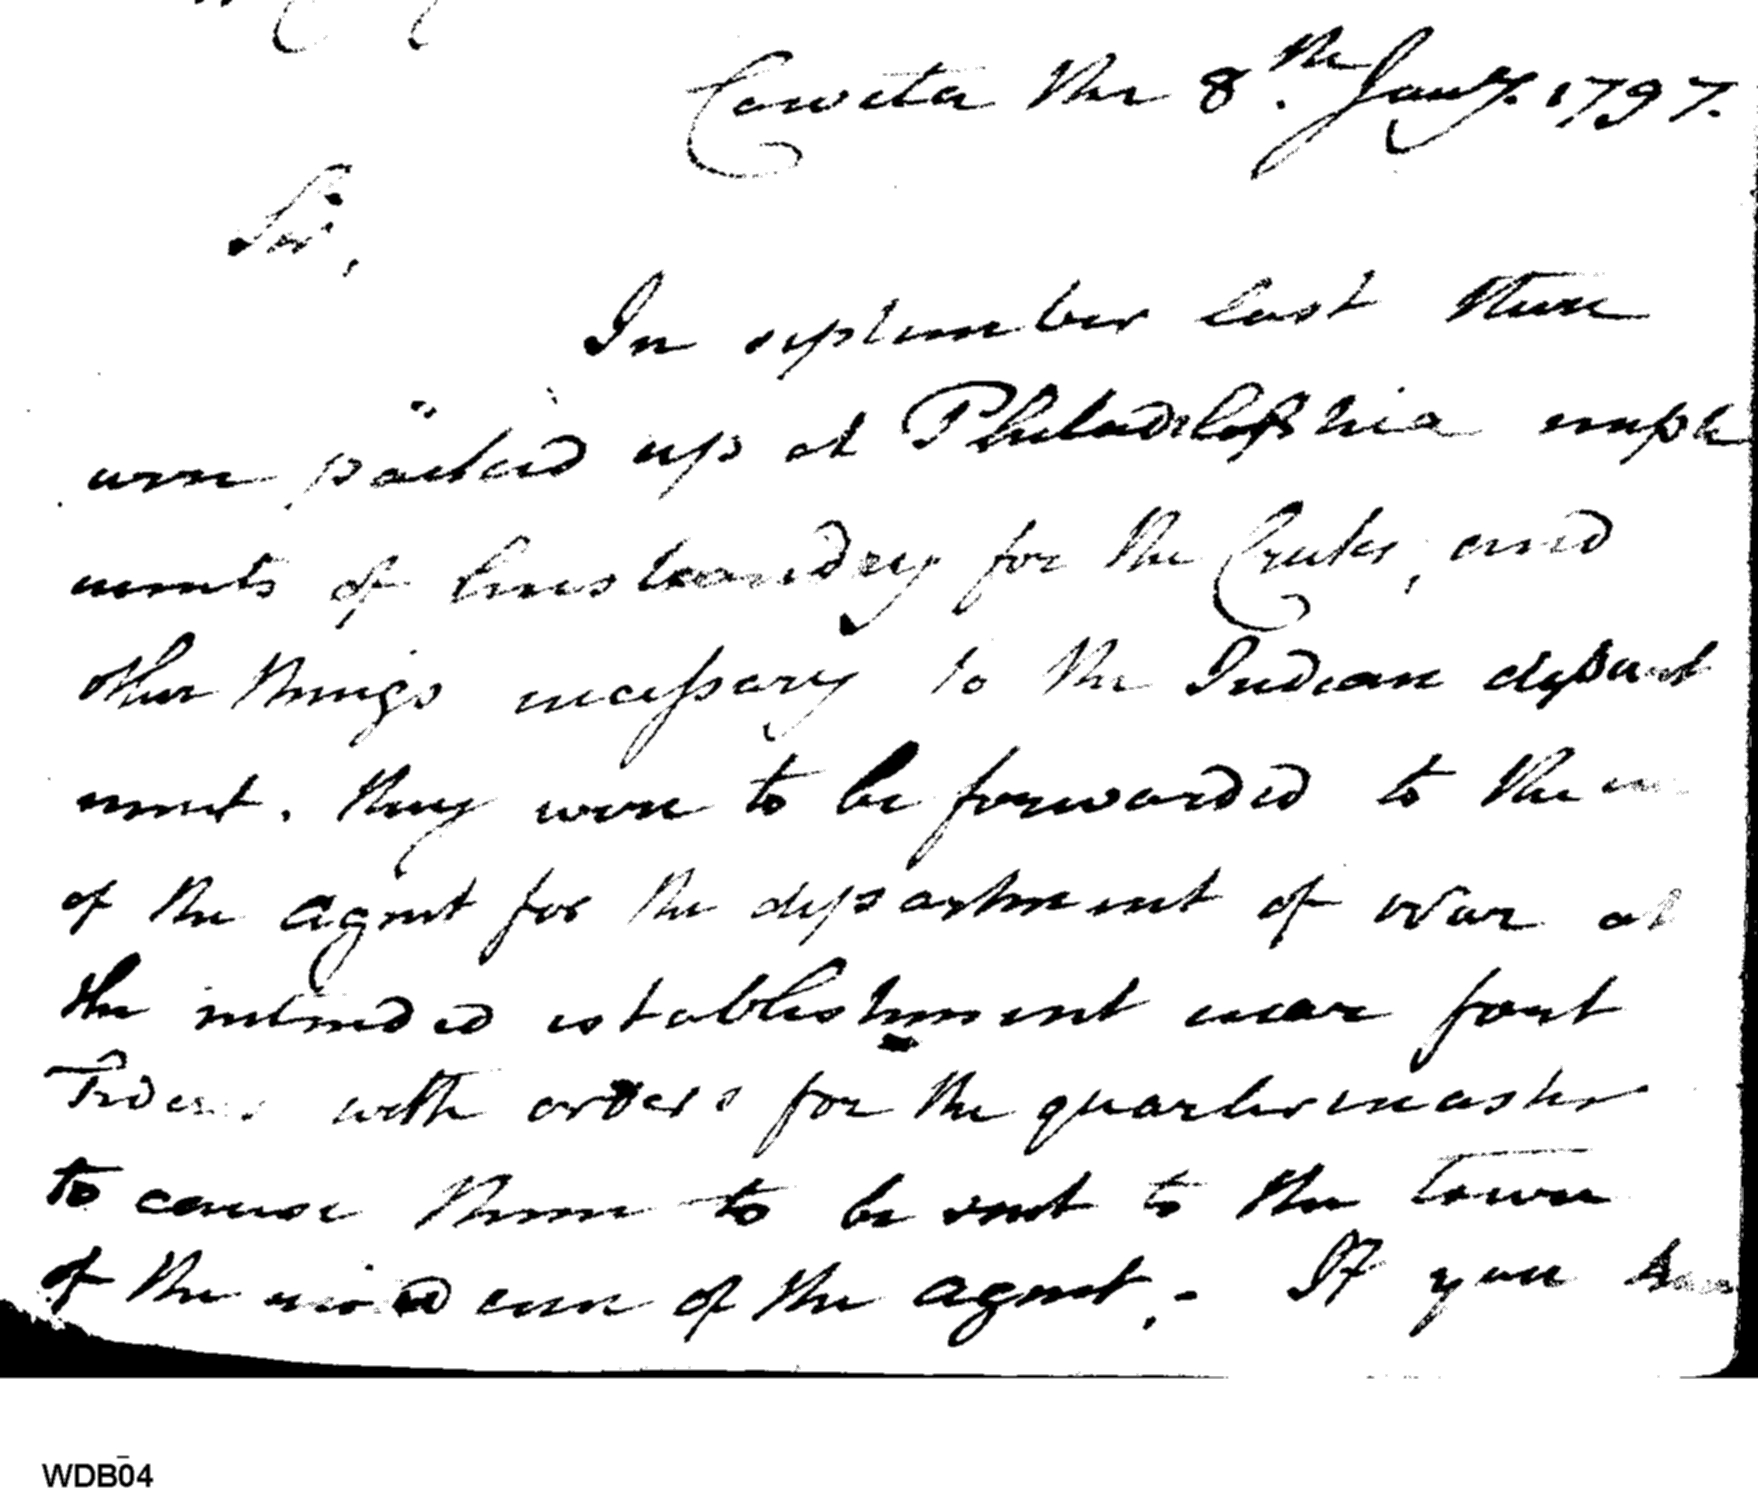 Coweta the 8.th Jany. 1797.
Sir,
In september last there
were packed up at Philadelphia imple
ments of husbandry for the Creeks, and
other things necessary to the Indian depart
ment. they were to be forwarded to the
of the agent for the department of war at
the intended establishment near fort
with orders for the quartermaster
to cause them to be sent to the town
of the residence of the agent. If you
WDB04